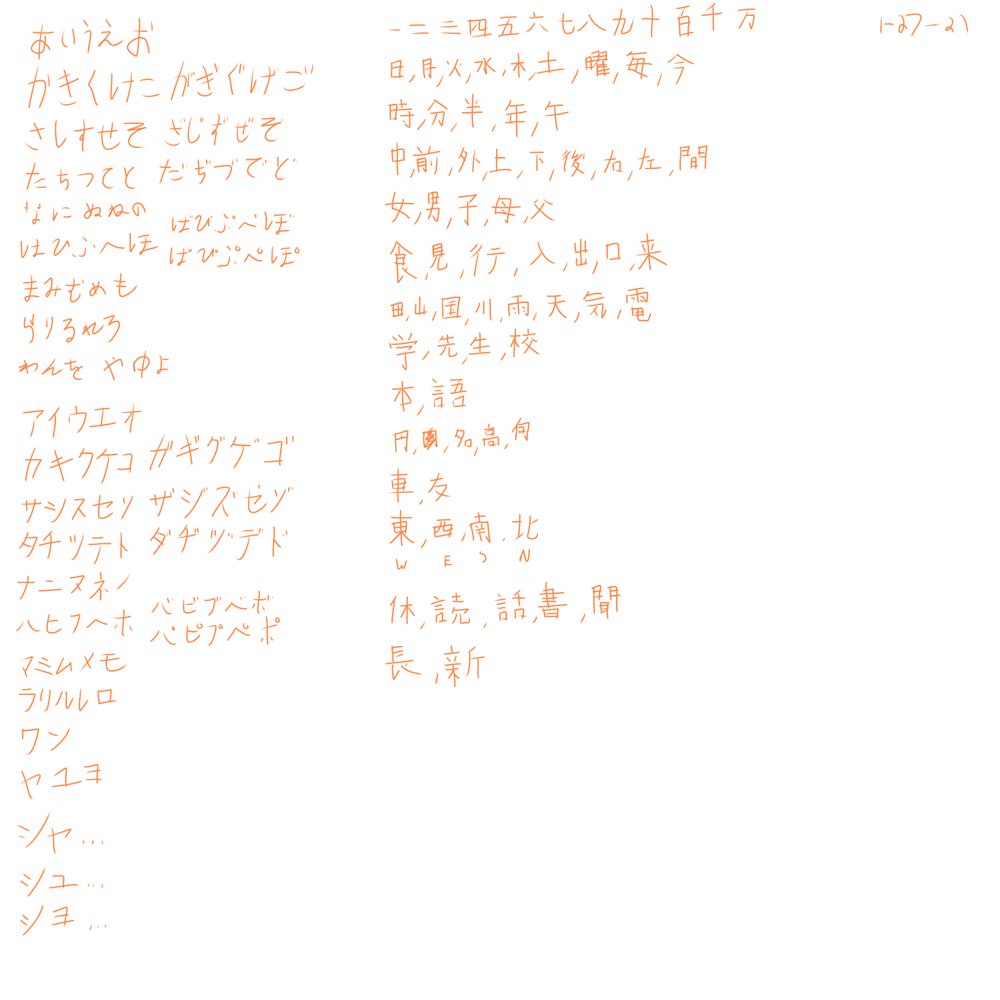 あいうえお
かきくけこ がぎぐげご
さしすせそ ざじずぜぞ
たちつてと だぢづでど
なにぬねの
はひふへほ ばびぶべぼ
ぱぴぷぺぽ
まみむめも
らりるれろ
わんを やゆよ
アイウエオ
カキクケコ ガギグゲゴ
サシスセソ ザジズゼゾ
タチツテト ダヂヅデド
ナニヌネノ
ハヒフヘホ バビブベボ
パピプペポ
マミムメモ
ラリルレロ
ワン
ヤユヨ
シャ...
シュ...
ショ...
一二三四五六七八九十百千万
日,月,火,水,木,土,曜,毎,今
時,分,半,年,午
中,前,外,上,下,後,右,左,間
女,男,子,母,父
食,見,行,入,出,口,来
田,山,国,川,雨,天,気,電
学,先,生,校
本,語
円,名,高,何
車,友
東,西,南,北
W E S N
休,読,話,書,聞
長,新
1-27-21